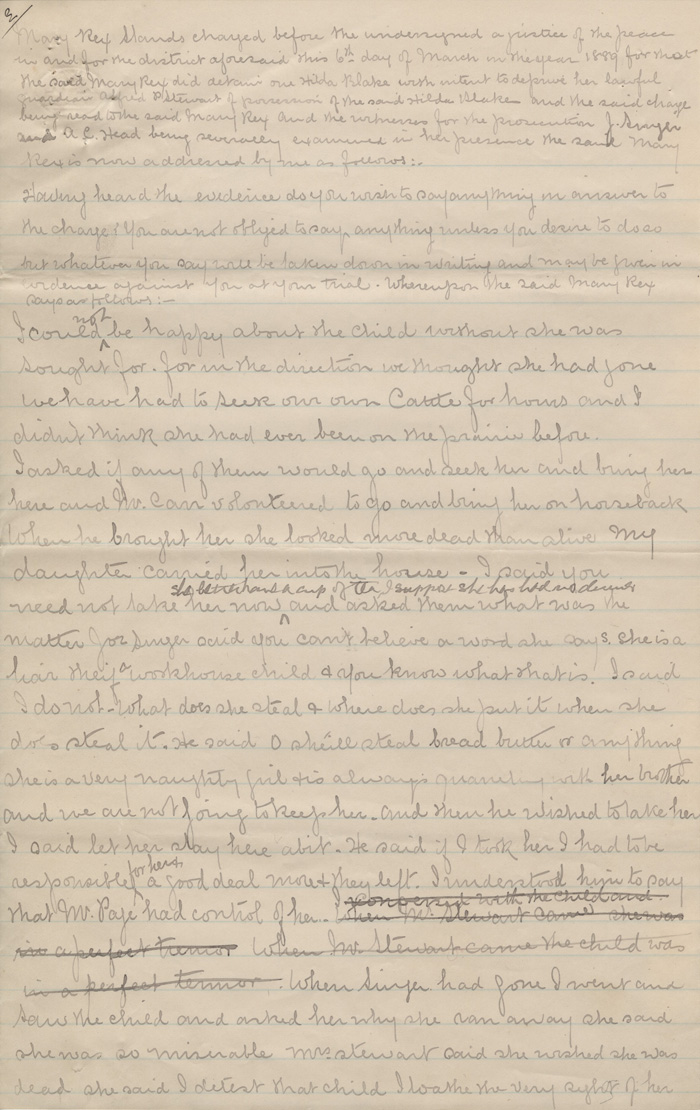 3/
Mary Rex Stands charged before the undersigned a justice of the peace
in and for the district aforesaid this 6th day of March in the year 1889 for that
the said Mary Rex did detain one Hilda Blake with intent to deprive her lawful
guardian Alfred P Stewart of possession of the said Hilda Blake and the said charge
being read to the said Mary Rex and the witnesses for the prosecution J. Singer
and A. C. Head being severally examined in her presence the said Mary
Rex is now addressed by me as follows:-
Having heard the evidence do you wish to say anything in answer to
the charge? You are not obliged to say anything unless you desire to do so
but whatever you say will be taken down in writing and may be given in
evidence against you at your trial. Whereupon the said Mary Rex
says as follows:-
I could not be happy about the child without she was
sought for. for in the direction we thought she had gone
we have had to seek our own Cattle for hours and I
didn't think she had ever been on the prairie before.
I asked if any of them would go and seek her and bring her
here and Mr. Carr volunteered to go and bring her on horseback
When he brought her she looked more dead than alive My
daughter carried her into the house - I said you
need not take her now she better have a cup of tea I suppose she has had no dinner and asked them what was the
matter for Singer said you can't believe a word she says. she is a
liar thief a workhouse child & you know what that is. I said
I do not. What does she steal & where does she put it when she
does steal it. He said O she'll steal bread butter or anything
she is a very naughty girl & is always quarreling with her brother
and we are not going to keep her. and then he wished to take her
I said let her stay here abit. He said if I took her I had to be
responsible for her & a good deal more & they left. I understood him to say
that Mr. Page had control of her. I conversed with the child and
when Mr. Stewart came she was
in a perfect tremor When Mr Stewart came the child was
in a perfect terror. When Singer had gone I went and
saw the child and asked her why she ran away she said
she was so miserable Mrs. Stewart said she wished she was
dead she said I detest that child I loathe the very sight of her